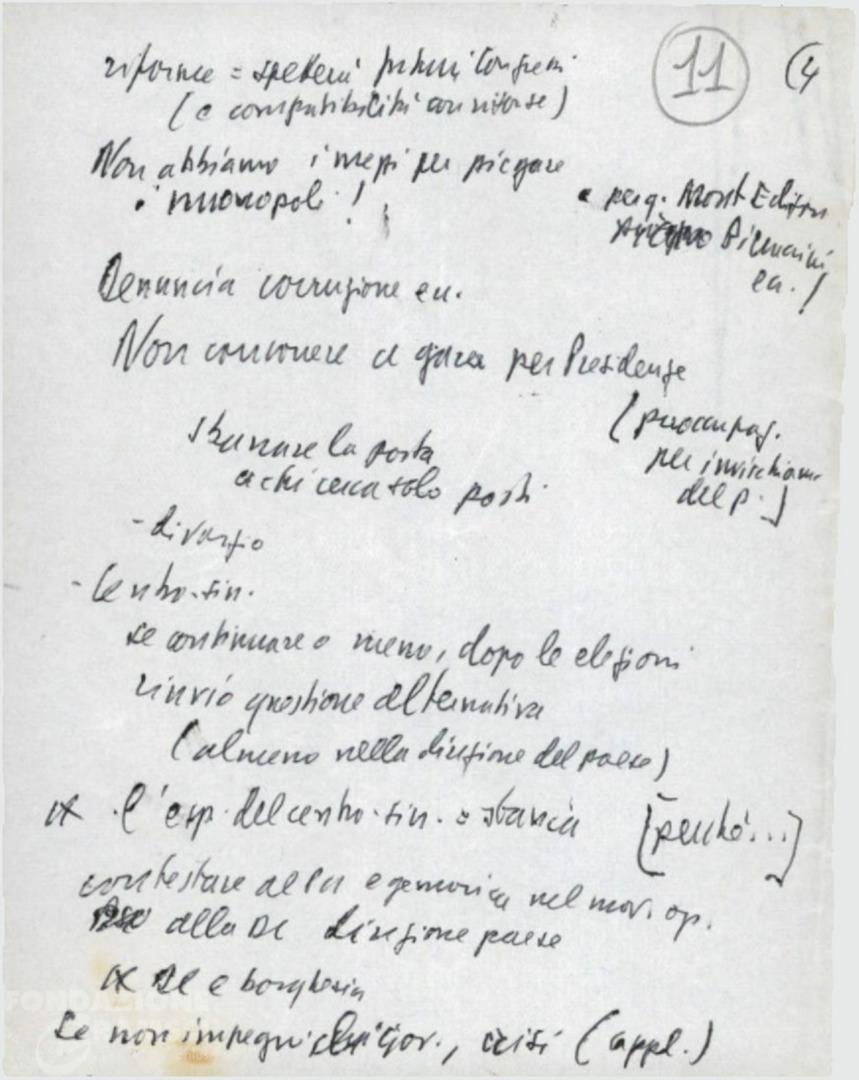 11 (4
riforme = spetterà futuri Congressi
(e compatibilità con risorse)
Non abbiamo i mezzi per piegare
i monopoli!
per q. MontEdison
Pirelli
ecc.!
Denuncia corruzione ecc.
Non concorrere a gara per Presidenze
(preoccupaz.
per invischiam.
del p.)
sbarrare la porta
a chi cerca solo posti
- divorzio
- Centro-sin.
se continuare o meno, dopo le elezioni
rinvio questione alternativa
(almeno nella direzione del paese)
l'esp. del centro-sin. =
[perché...]
contestare al PCI egemonia nel mov. op.
alla DC direzione paese
DC e borghesia
se non impegni Gov., crisi (appl.)
FONDAZIONE